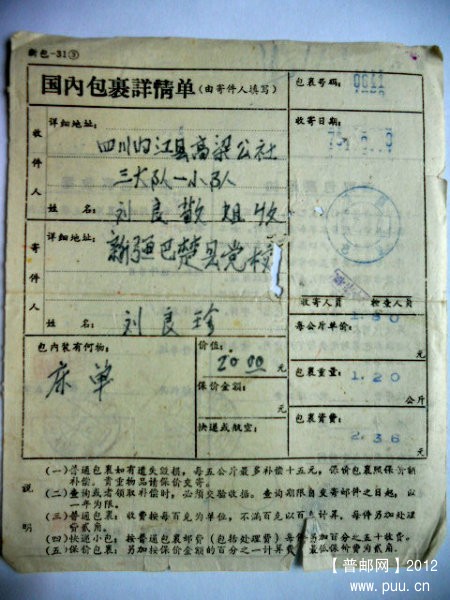 新包-31③
国内包裹詳情单(由寄件人填写)
包裹号码:
收件人
详细地址:
四川内江县高梁公社
三大队一小队
姓名:
刘良
姐收
收寄日期:
寄件人
详细地址:
新疆巴楚县党校
姓名:
刘良珍
收寄人员 检查人员
每公斤单价:
1.80
元
包内装有何物:
床单
价值:
20.00元
保价金额:
元
快递或航空:
包裹重量:
1.20
公斤
包裹资费:
2.36
元
说明
(一)普通包裹如有遗失毁损,每五公斤最多补偿十五元,保价包裹照保价额
补偿。贵重物品请保价交寄。
(二)查询或者领取补偿时,必须交验收据。查询期限自交寄邮件之日起,以
一年为限。
(三)普通包裹:收费按每百克为单位,不满百克以百克计算,每件另加处理
费贰角。
(四)快递小包:按普通包裹邮费(包括处理费)每件另加百分之五十收费。
(五)保价包裹:另加按保价金额的百分之一计算费,最低保价费为贰角。
【普邮网】2012
www.puu.cn